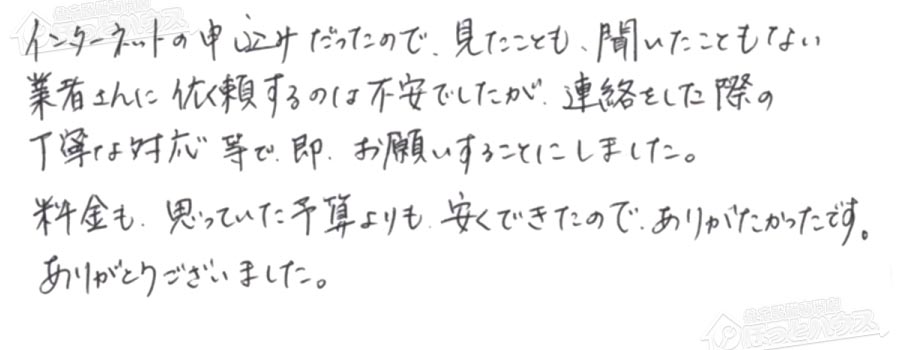 インターネットの申込みだったので、見たことも、聞いたこともない
業者さんに依頼するのは不安でしたが、連絡をした際の
丁寧な対応等で、即、お願いすることにしました。
料金も、思っていた予算よりも、安くできたので、ありがたかったです。
ありがとうございました。
ほっとハウス